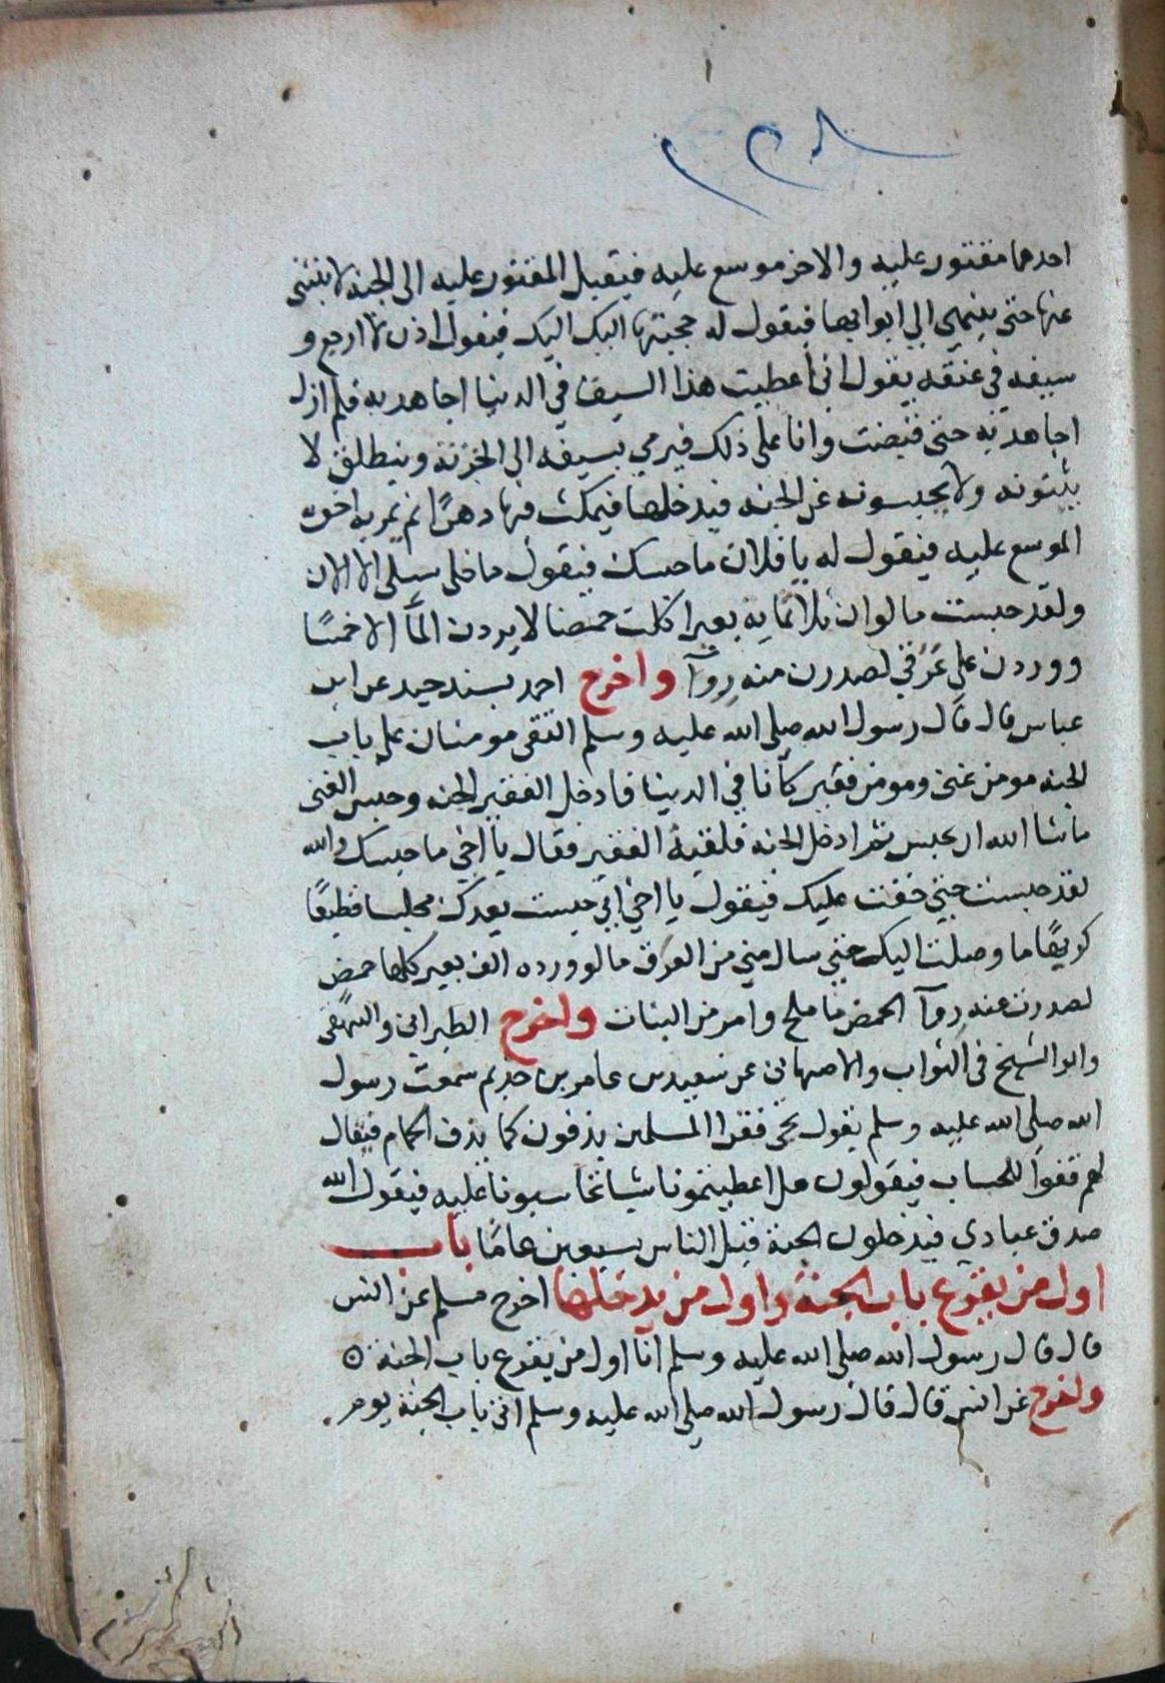 احدهما مقتور عليه والاخر موسع عليه فيقبل المقتور عليه الى الجنة لا ينثنى
عنها حتى ينتهي الى ابوابها فيقول له حجبتها اليك اليك فيقول اذن لا ارجع و
سيفه في عنقه يقول انى أعطيت هذا السيف في الدنيا اجاهد به فلم ازل
اجاهد به حتى قبضت وانا على ذلك فيرمي بسيفه الى الخزنة وينطلق لا
يثبتونه ولا يحبسونه عن الجنه فيدخلها فيمكث فيها دهرًا ثم يمر به اخوه
الموسع عليه فيقول له يا فلان ما حبسك فيقول ما خلى سبيلى الا الان
ولقد حبست ما لو ان ثلاثماية بعير اكلت حمضا لا يردن المآ الا خمسًا
ووردن على عَرَقي لصدرن منه روآ واخرج احمد بسند جيد عن ابن
عباس قال قال رسول الله صلى الله عليه وسلم التقى مومنان على باب
الجنه مومن غنى ومومن فقير كانا في الدينا فادخل الفقير الجنه وحبس الغنى
ما شا الله ان يحبس ثم ادخل الجنه فلقيه الفقير فقال يا اخي ما حبسك والله
لقد حبست حتى خفت عليك فيقول يا اخي اني حبست بعدك محبسا فظيعًا
كريهًا ما وصلت اليك حتى سال مني من العرق ما لو ورده الف بعير كلها حمض
لصدرت عنه روآ الحمض ما ملح وامر من النبات واخرج الطبراني والبيهقى
وابو الشيخ في الثواب والاصبهاني عن سعيد بن عامر بن حذيم سمعت رسول
الله صلى الله عليه وسلم يقول يجى فقرا المسلمين يزفون كما يزف الحمام فيقال
لهم قفوا للحساب فيقولون هل اعطيتمونا شيا تحاسبونا عليه فيقول الله
صدق عبادي فيدخلون الجنة قبل الناس بسبعين عامًا باب
اول من يقرع باب الجنة واول من يدخلها اخرج مسلم عن انس
قال قال رسول الله صلى الله عليه وسلم انا اول من يقرع باب الجنه ⊙
واخرج عن انس قال قال رسول الله صلى الله عليه وسلم اتى باب الجنة يوم